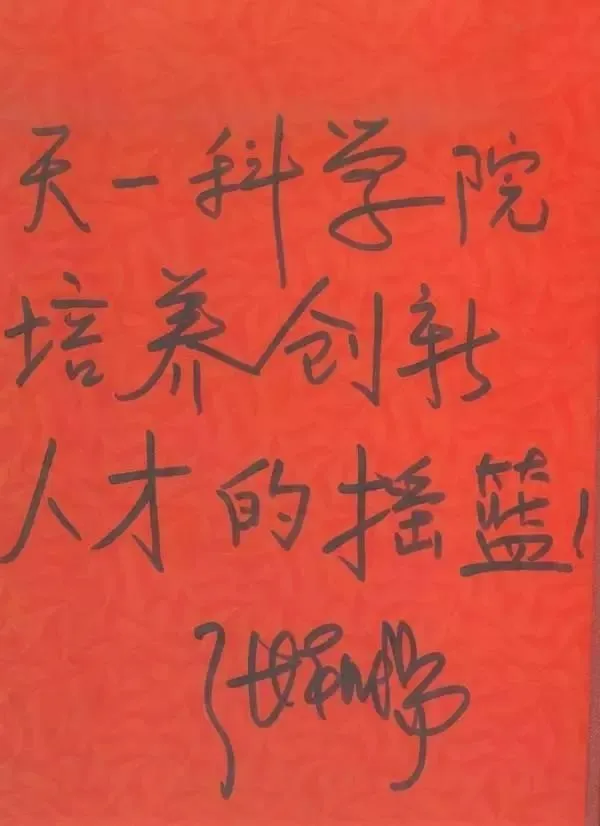 天一科学院
培养创新
人才的摇篮！